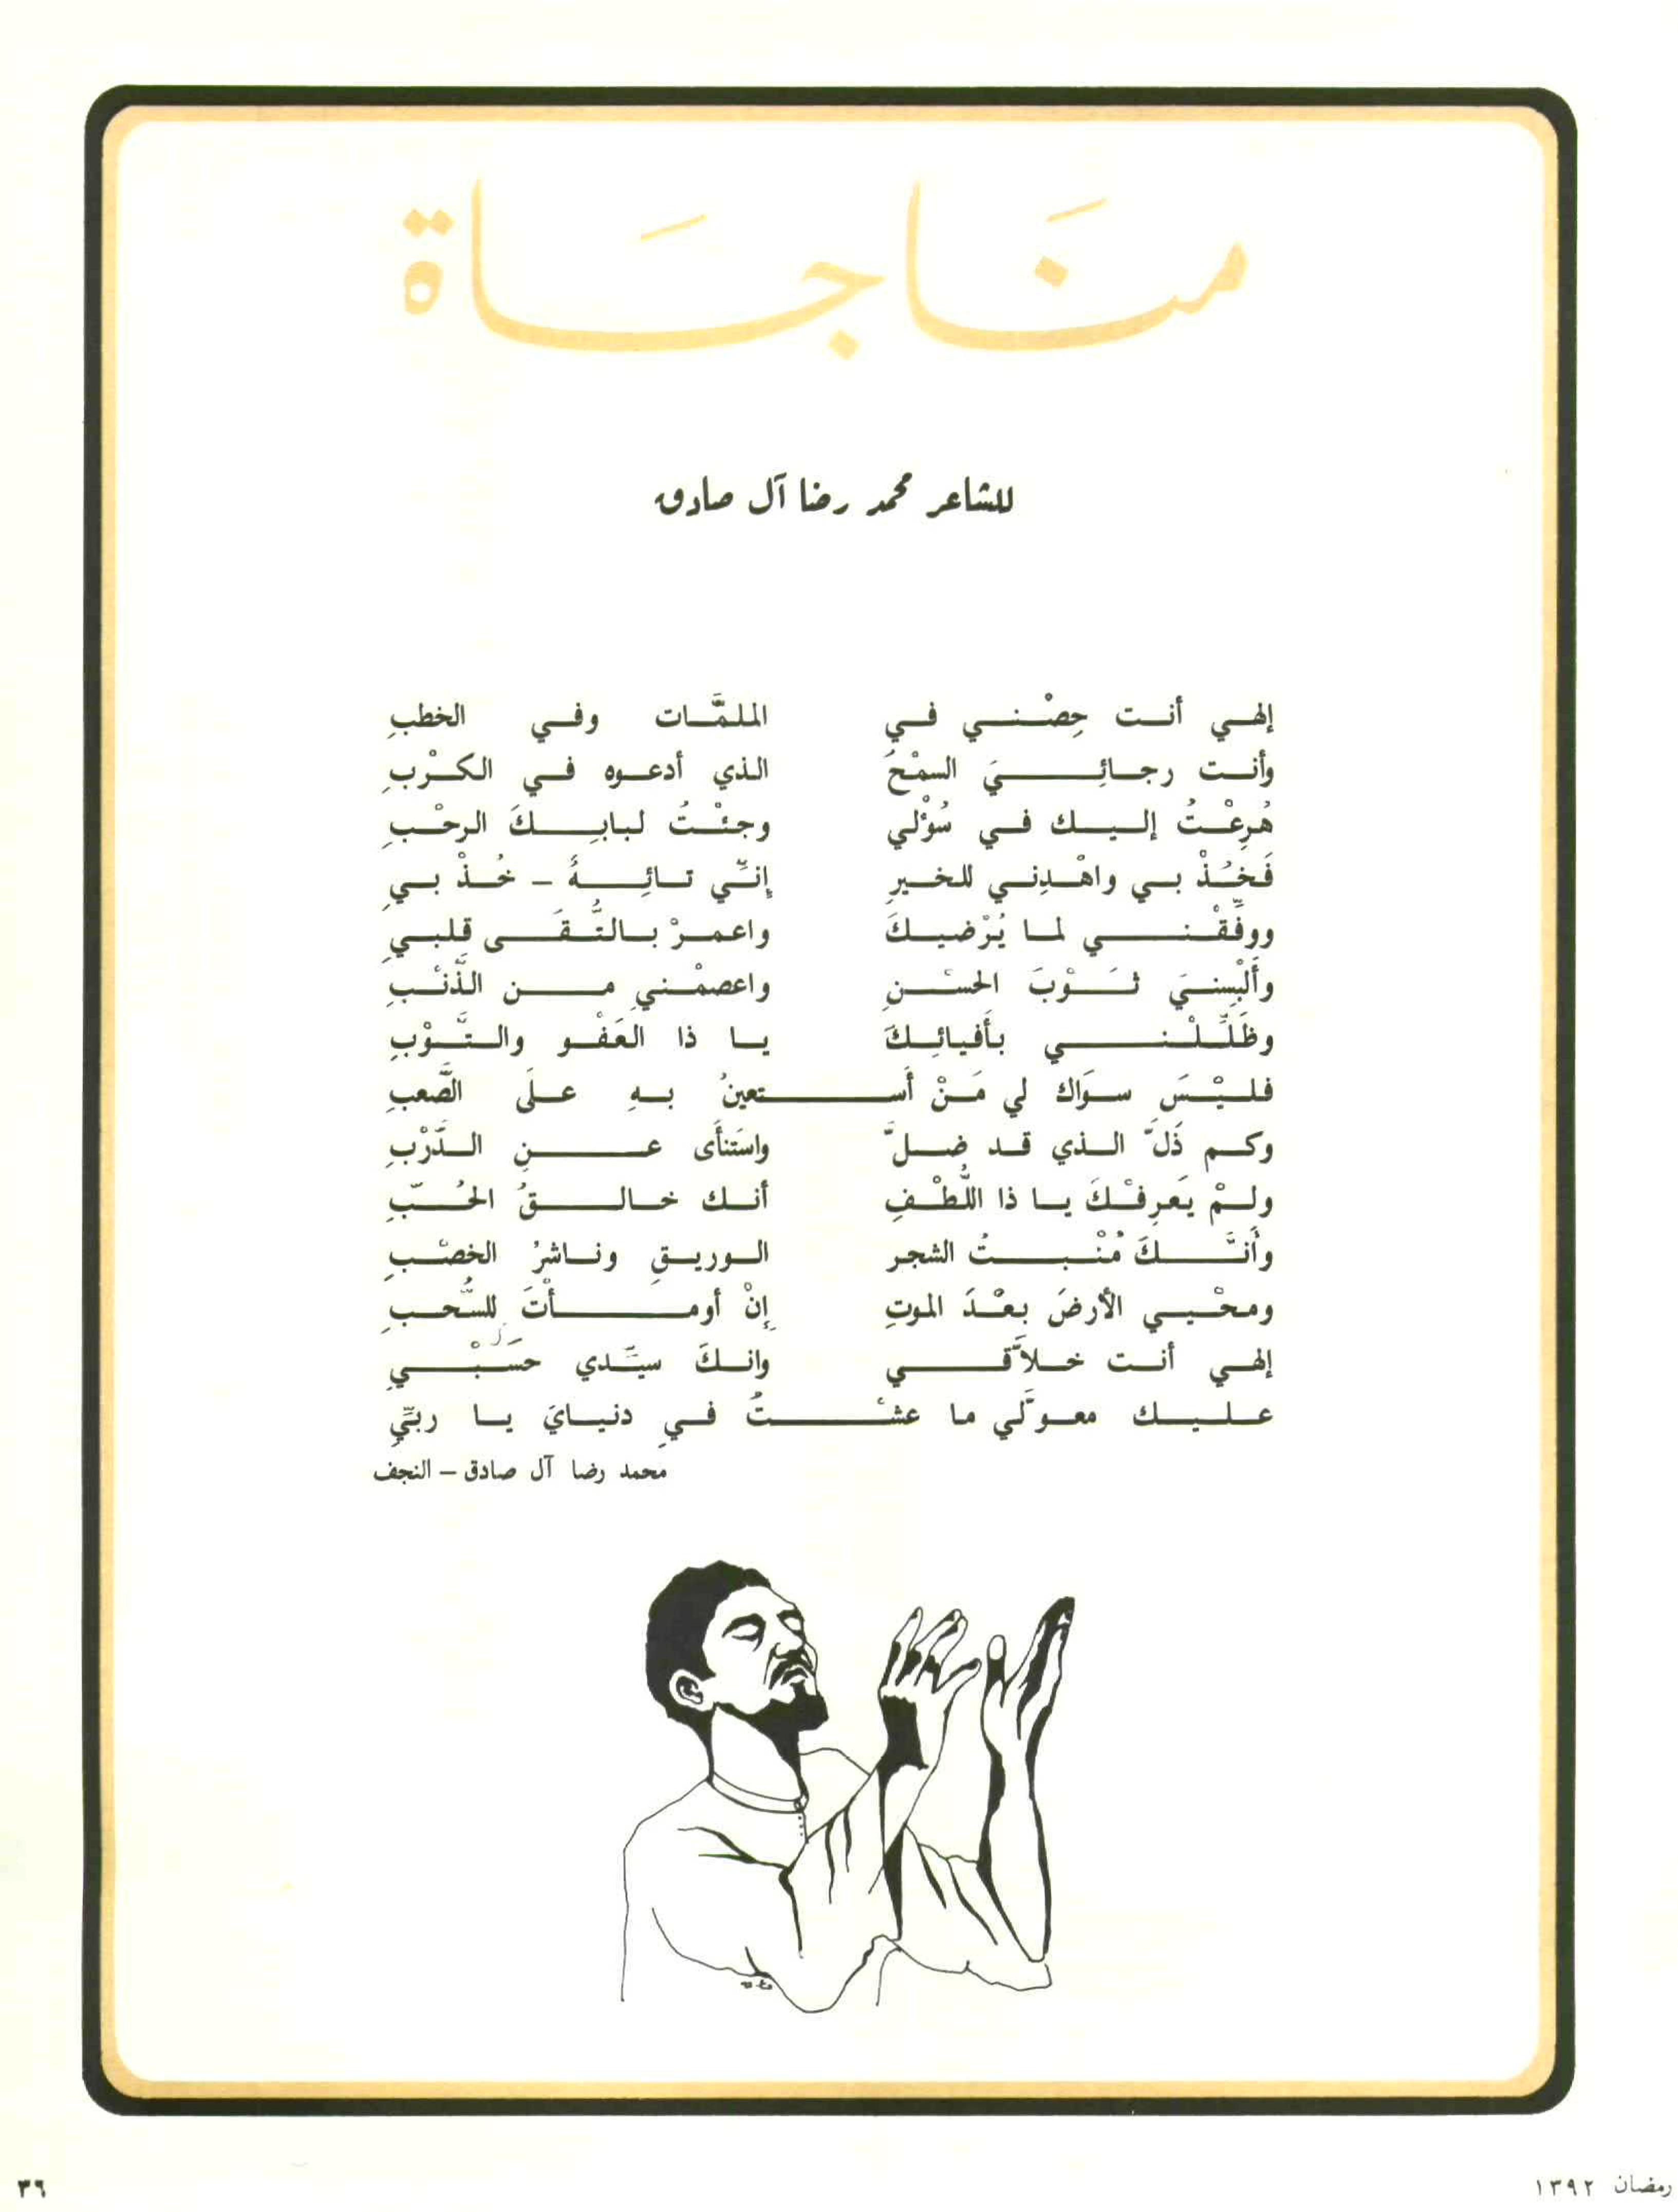 منَاجَاة
للشاعر محمد رضا آل صادق
إلهي أنت حِصْني في الملمَّات وفي الخطبِ
وأنت رجائِيَ السمْحُ الذي أدعوه في الكرْبِ
هُرِعْتُ إليك في سُؤْلي وجئْتُ لبابِكَ الرحْبِ
فَخُذْ بي واهْدِني للخيرِ إنّي تائِهٌ – خُذْ بي
ووفّقْني لما يُرْضيكَ واعمرْ بالتُّقَى قلبي
وأَلْبِسنيَ ثَوْبَ الحسْنِ واعصمْني من الذَّنْبِ
وظَلِّلْني بأَفيائِكَ يا ذا العَفْو والتَّوْبِ
فليْسَ سوَاك لي مَنْ أَستعينُ بهِ علَى الصَّعبِ
وكم ذَلَّ الذي قد ضلَّ واستَنأَى عنِ الدَّرْبِ
ولمْ يَعرِفْكَ يا ذا اللُّطْفِ أنك خالقُ الحُبّ
وأَنَّكَ مُنْبتُ الشجر الوريقِ وناشرُ الخصْبِ
ومحْيي الأرضَ بعْدَ الموتِ إنْ أومأْتَ للسُّحبِ
إلهي أنت خلاَّقي وانكَ سيَّدي حَسْبْي
عليك معوَّلي ما عشْتُ في دنيايَ يا ربّي
محمد رضا آل صادق – النجف
رمضان ١٣٩٢
٣٦